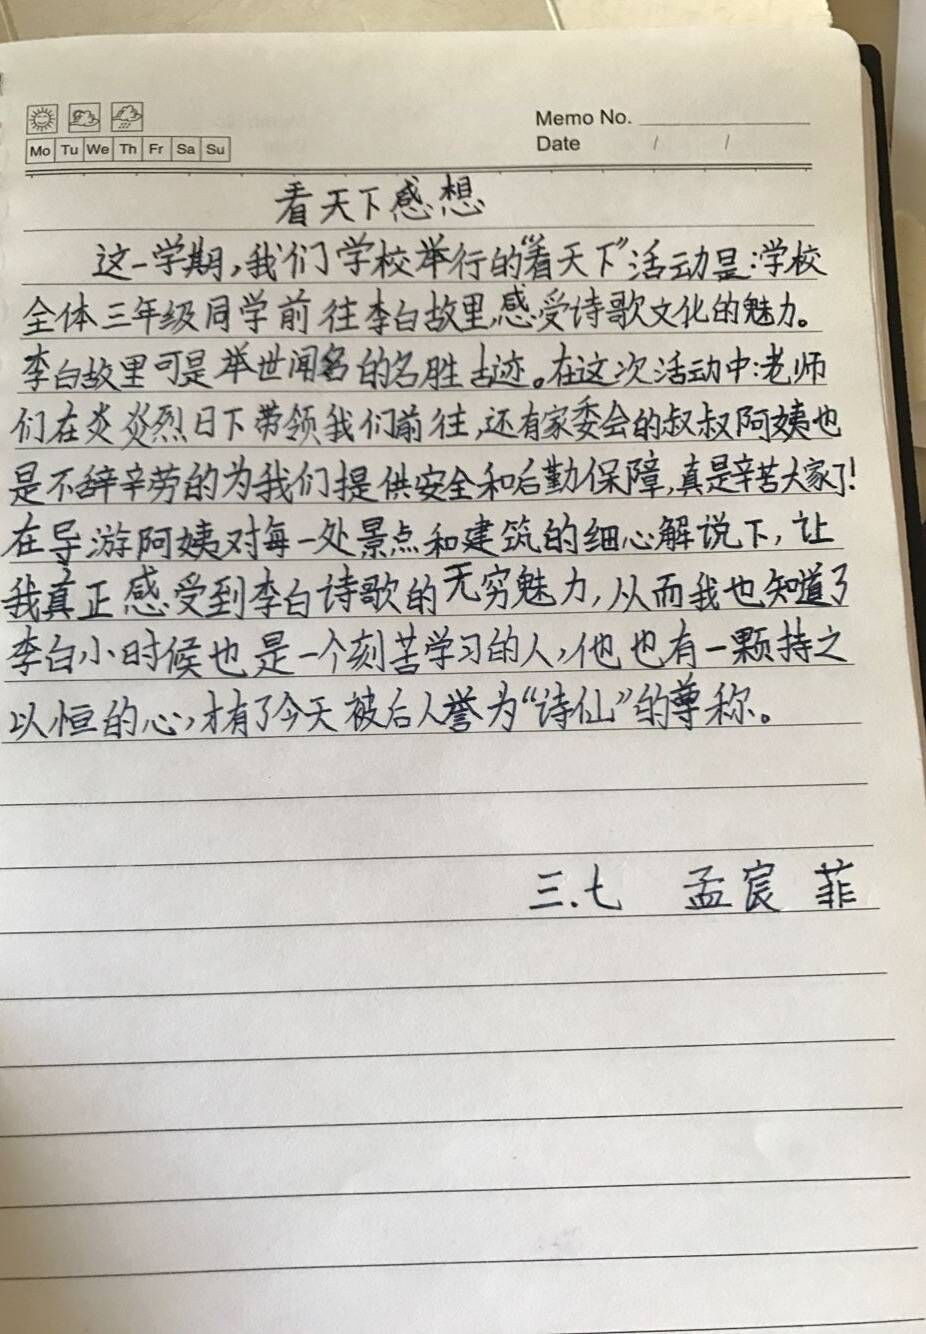 Memo No.
Mo Tu We Th Fr Sa Su
Date / /
看天下感想
这一学期,我们学校举行的“看天下”活动是:学校
全体三年级同学前往李白故里,感受诗歌文化的魅力。
李白故里可是举世闻名的名胜古迹。在这次活动中:老师
们在炎炎烈日下带领我们前往,还有家委会的叔叔阿姨也
是不辞辛劳的为我们提供安全和后勤保障,真是辛苦大家了!
在导游阿姨对每一处景点和建筑的细心解说下,让
我真正感受到李白诗歌的无穷魅力,从而我也知道了
李白小时候也是一个刻苦学习的人,他也有一颗持之
以恒的心,才有了今天被后人誉为“诗仙”的尊称。
三.七 孟宸菲